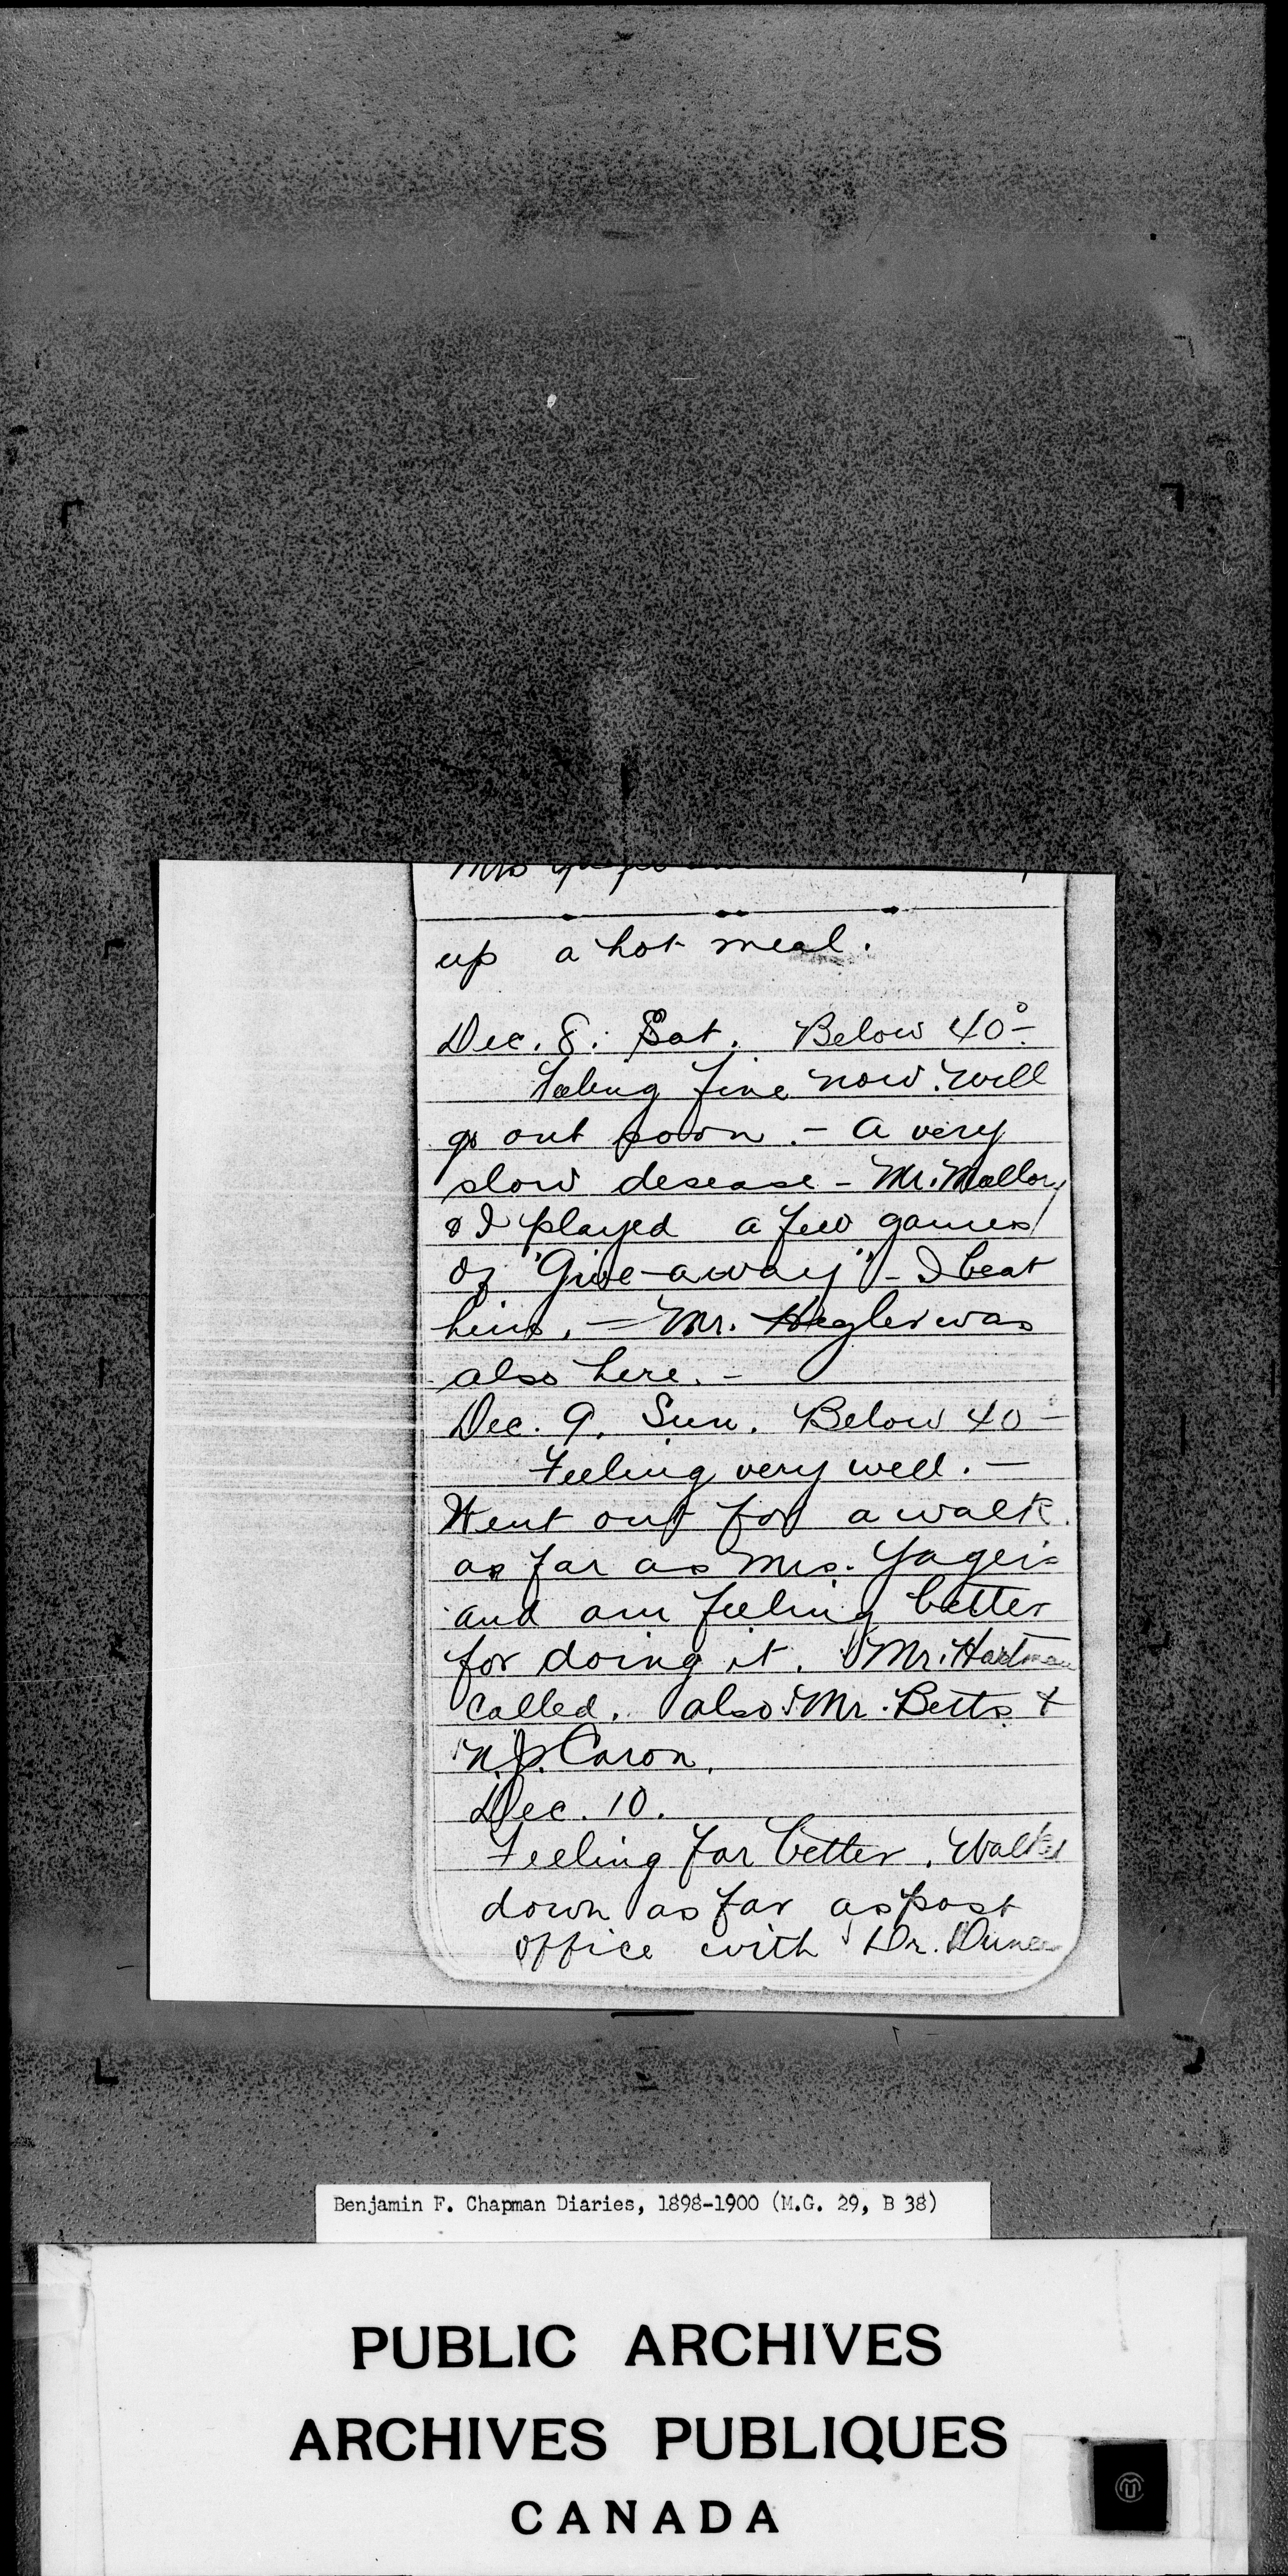 Mrs
up a hot meal.
Dec. 8. Sat. Below 40°-
Feeling fine now. will
go out soon. - A very
slow desease - Mr. Mallory
& I played a few games
of "Give-away" - I beat
him. - Mr. Hegler was
also here. -
Dec. 9. Sun. Below 40 -
Feeling very well. -
Went out for a walk.
as far as Mrs. Yager's
and am feeling better
for doing it. Mr. Hartman
called. also Mr. Betts &
N.J. Caron.
Dec. 10.
Feeling far better. Walked
down as far as post
office with Dr.
Benjamin F. Chapman Diaries, 1898-1900 (M.G. 29, B 38)
PUBLIC ARCHIVES
ARCHIVES PUBLIQUES
CANADA